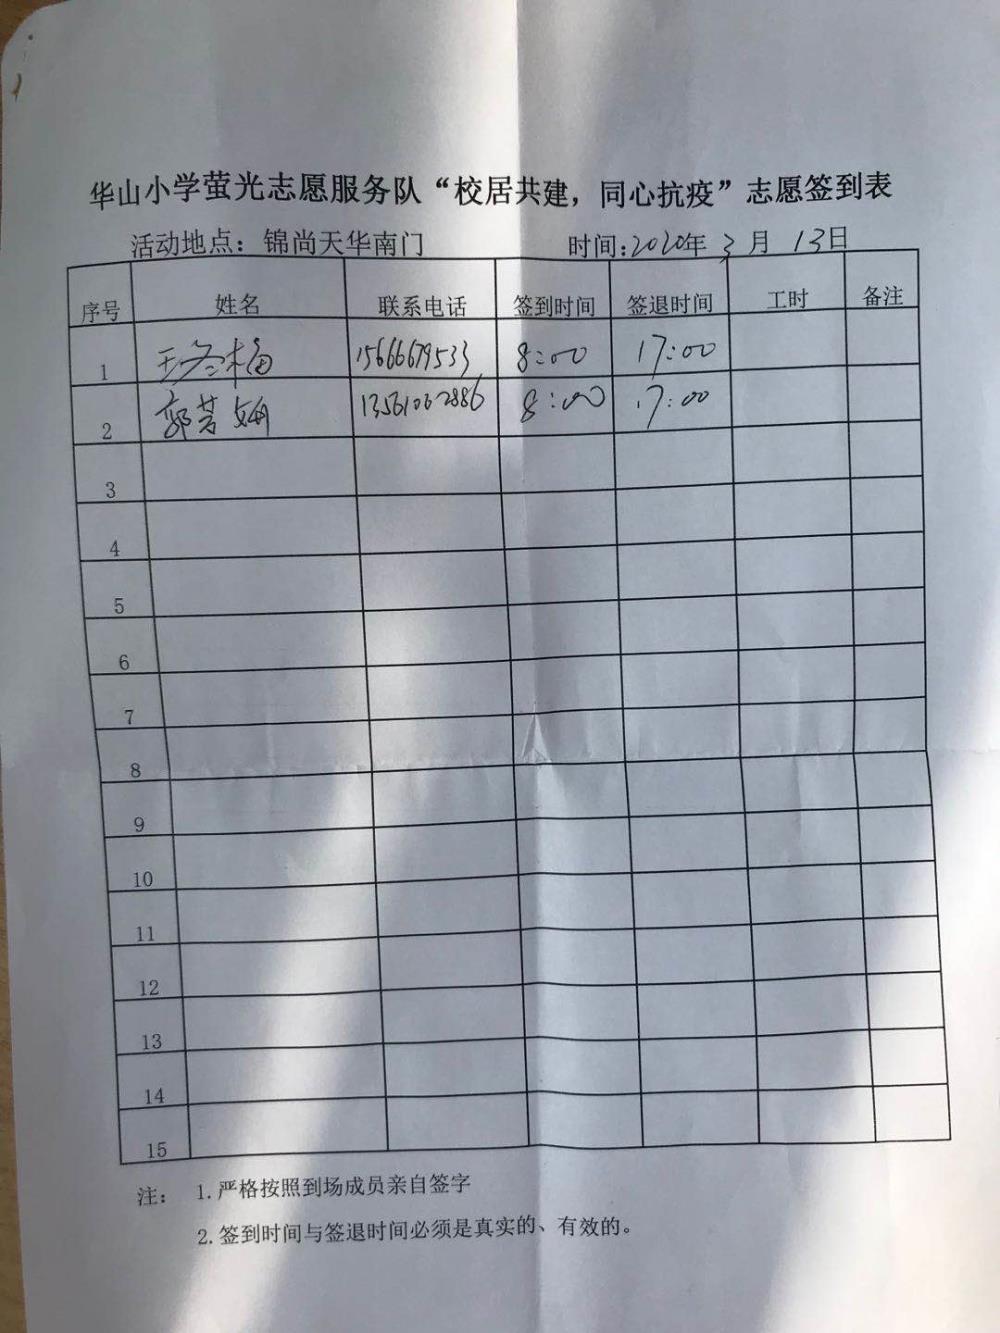 华山小学萤光志愿服务队“校居共建，同心抗疫”志愿签到表
活动地点：锦尚天华南门 时间：2020年 3月 13日
序号 姓名 联系电话 签到时间 签退时间 工时 备注
1 15666679533 8:00 17:00
2 郭芳娟 13561062886 8:00 17:00
3
4
5
6
7
8
9
10
11
12
13
14
15
注： 1.严格按照到场成员亲自签字
2.签到时间与签退时间必须是真实的、有效的。